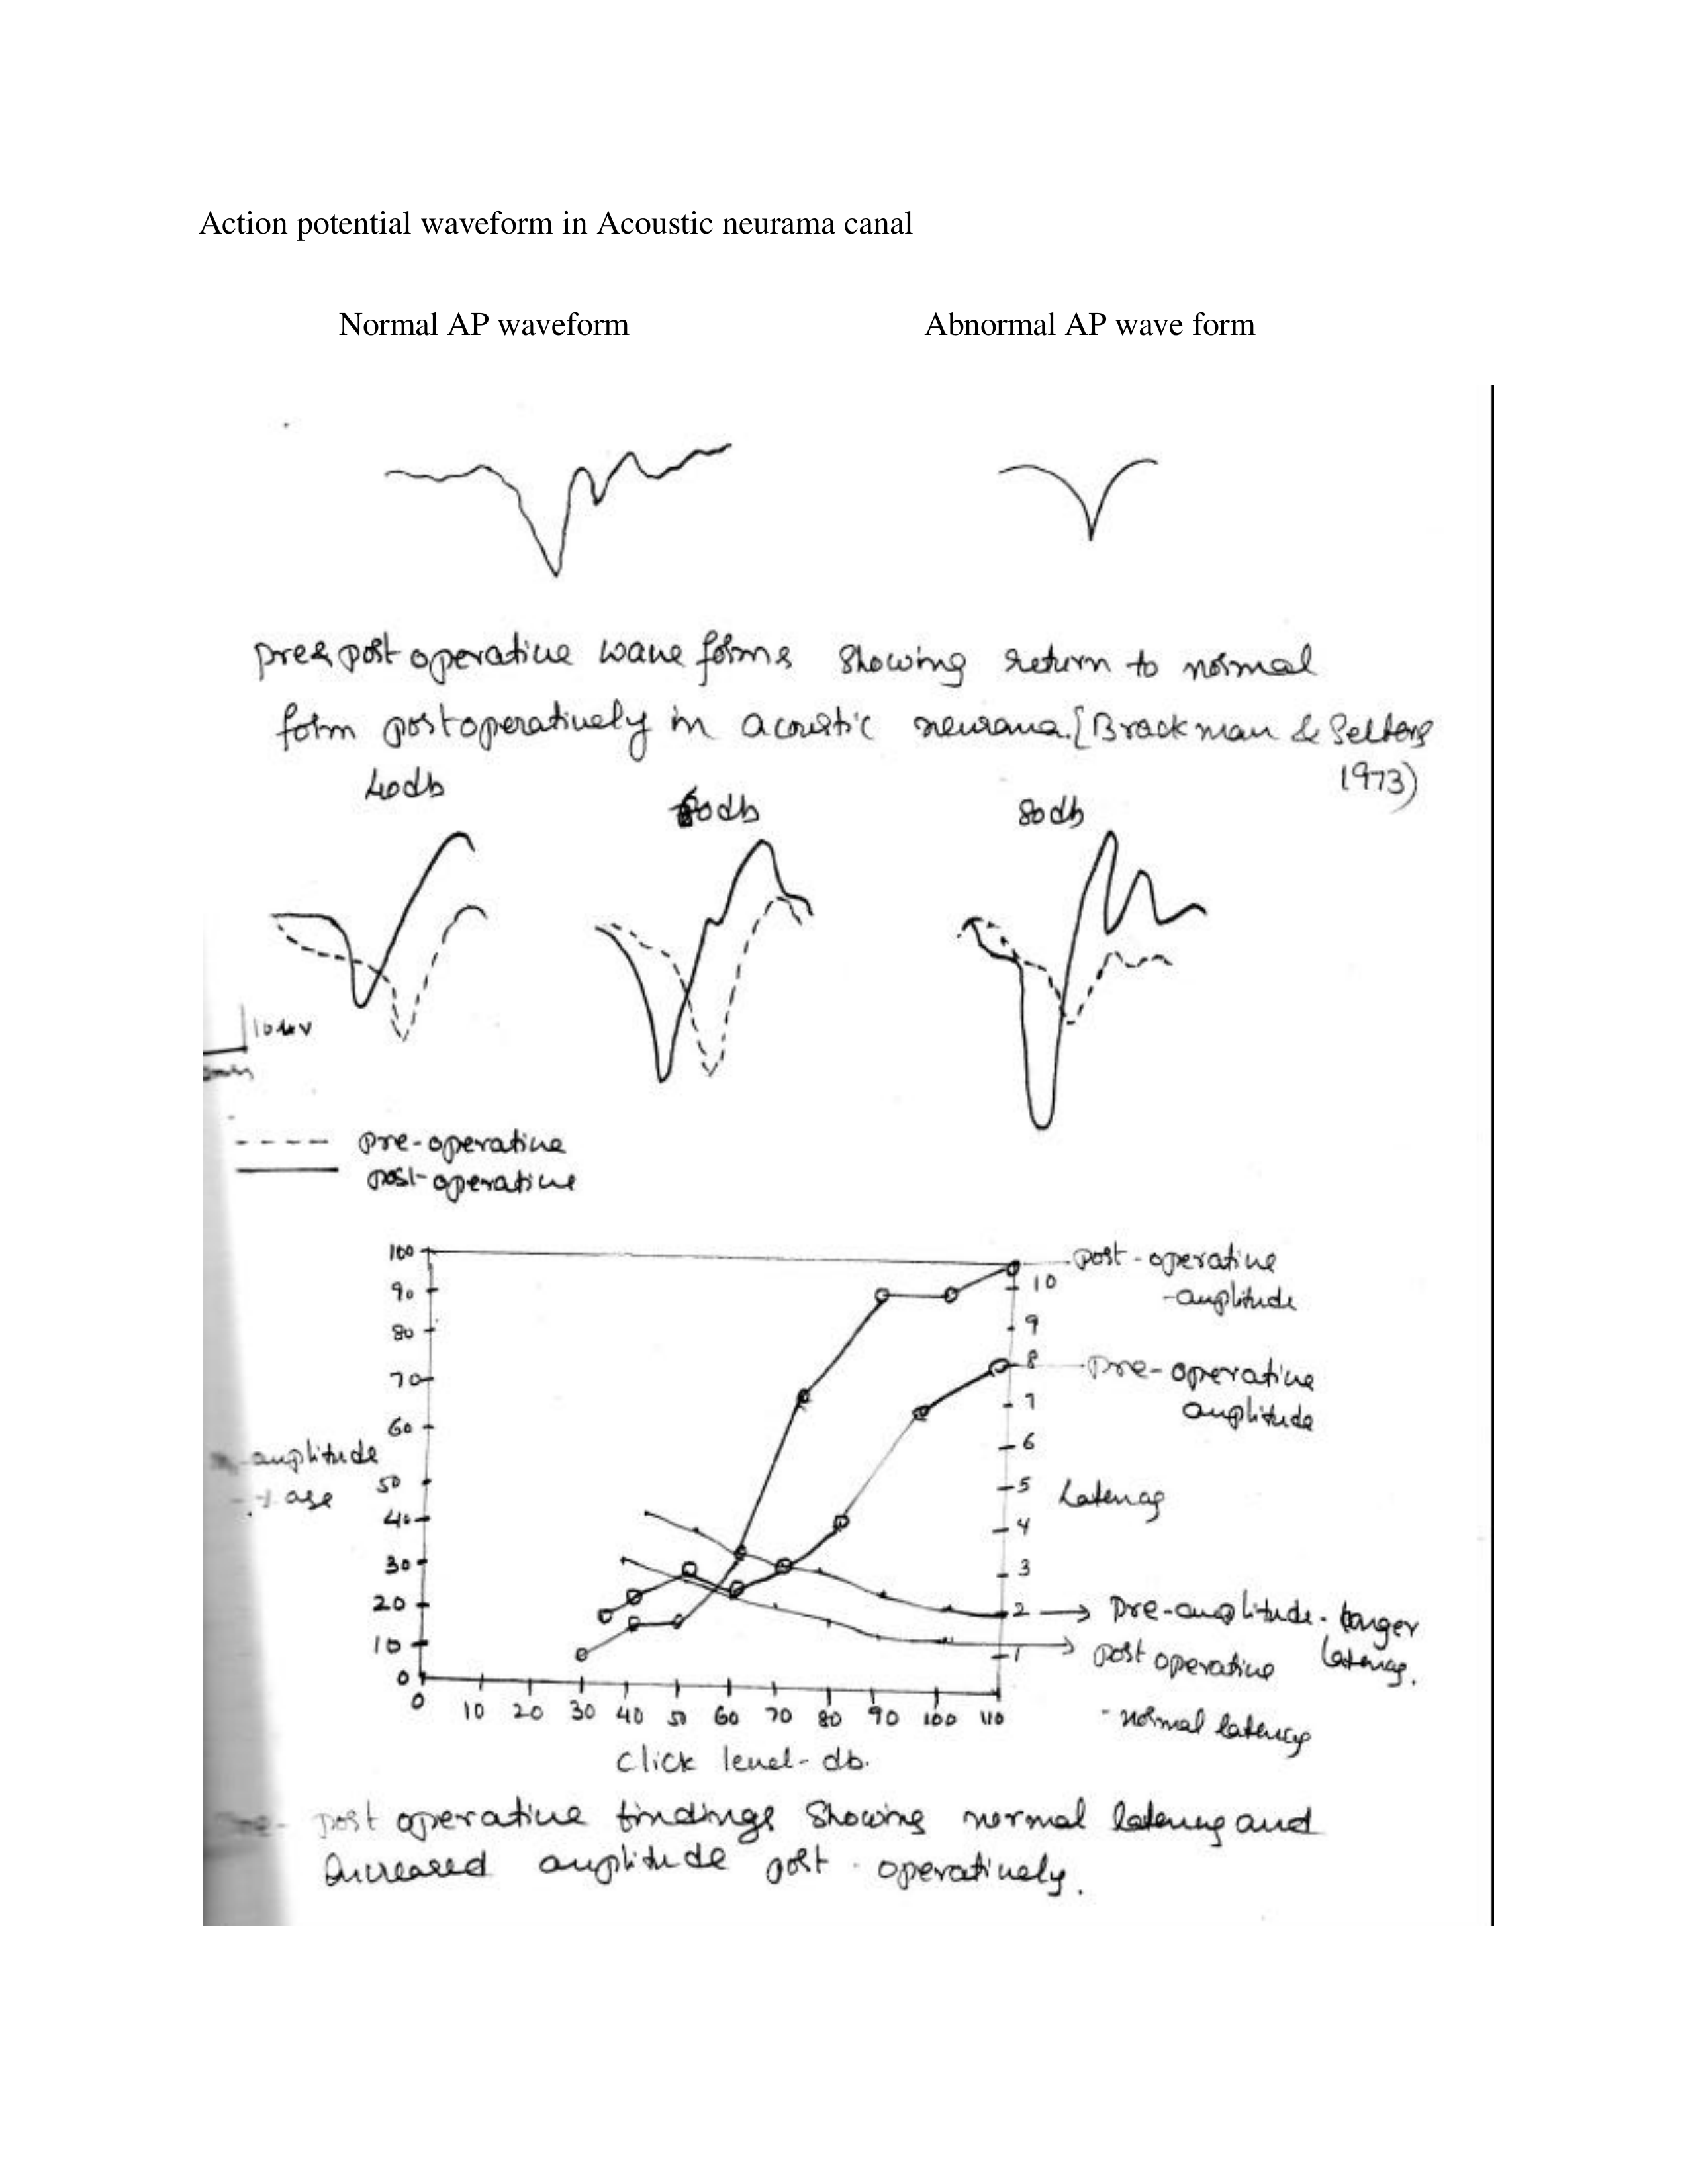 Action potential waveform in Acoustic neurama canal
Normal AP waveform
Abnormal AP wave form
pre & post operative wave forms showing return to normal
form postoperatively in acoustic neurama. [Brackman &
1973)
40db
60db
80db
---- pre-operative
post-operative
100
90
80
70
60
50
40
30
20
10
0
amplitude
10
9
8
7
6
5
4
3
2
1
Latency
post-operative
-amplitude
Pre-operative
amplitude
Pre-amplitude - longer
latency.
post operative
- normal latency
0 10 20 30 40 50 60 70 80 90 100 110
click level- db.
post operative findings showing normal latency and
increased amplitude post-operatively.